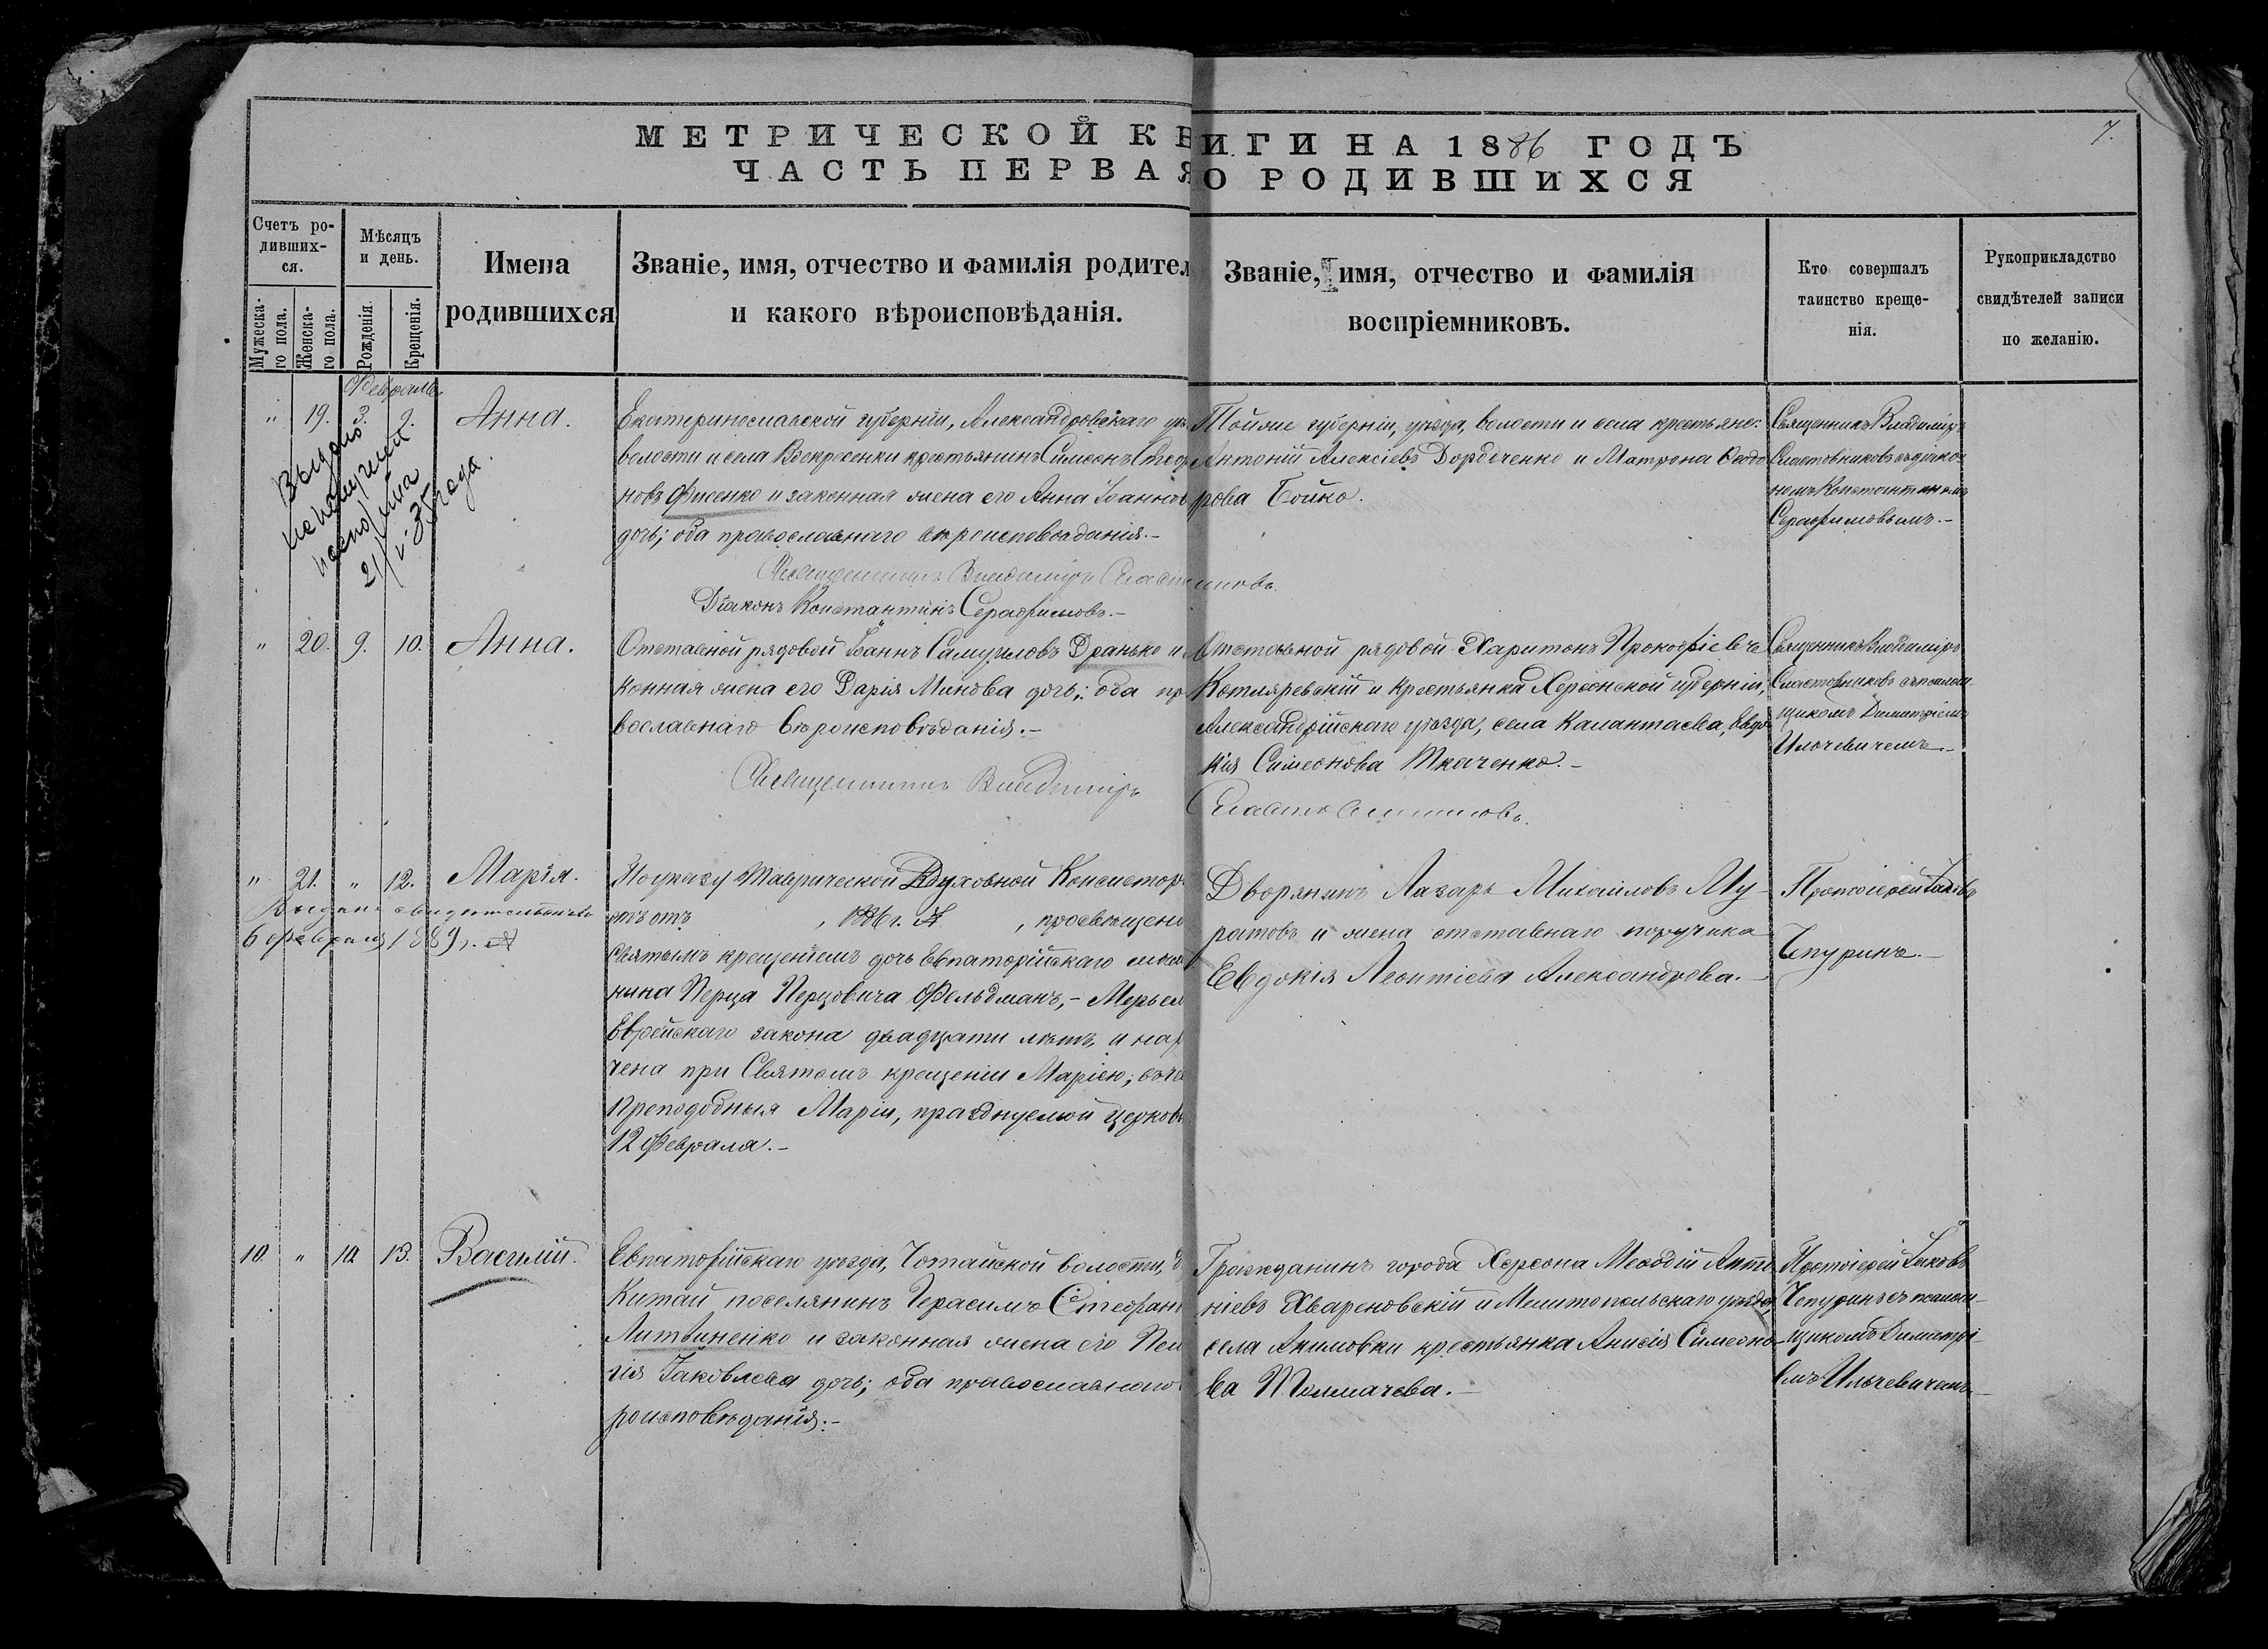 МЕТРИЧЕСКОЙ КНИГИ НА 1886 ГОДЪ
ЧАСТЬ ПЕРВАЯ О РОДИВШИХСЯ
7.
Счетъ ро-
дивших-
ся.
Мужеска-
го пола.
Женска-
го пола.
Мѣсяцъ
и день.
Рожденія.
Крещенія.
Имена
родившихся
Званіе, имя, отчество и фамилія родител
и какого вѣроисповѣданія.
Званіе, имя, отчество и фамилія
воспріемниковъ.
Кто совершалъ
таинство креще-
нія.
Рукоприкладство
свидѣтелей записи
по желанію.
Февраль
" 19. 3. 9. Анна.
Екатеринославской губерніи, Александровскаго уѣ
волости и села Воскресенки крестьянинъ Симеонъ Стеф
новъ Фисенко и законная жена его Анна Іоаннов
дочь; оба православнаго вѣроисповѣданія.-
Священникъ Владиміръ Сластниковъ.
Діаконъ Константинъ Серафимовъ.-
Тойже губерніи, уѣзда, волости и села крестьяне:
Антоній Алексіевъ Дордіченко и Матрона Ѳеодо
рова Бойко.
Священникъ Владиміръ
Сластовниковъ съ діако-
номъ Константиномъ
Серафимовымъ.-
Выдано
паспорта
21/
35 года.
" 20. 9. 10. Анна.
Отставной рядовой Іоаннъ Самуиловъ Дранько и
конная жена его Дарія Минова дочь; оба пр
вославнаго вѣроисповѣданія.-
Священникъ Владиміръ
Отставной рядовой Харитонъ Прокофіевъ
Котляревскій и крестьянка Херсонской губерніи,
Александрійскаго уѣзда, села Калантаева, Евдо
кія Симеонова Ткаченко.-
Сластовниковъ.
Священникъ Владиміръ
Сластовниковъ съ псалом-
щикомъ Димитріемъ
Ильчевичемъ.-
" 21. " 12. Марія.
Выдано свидѣтельство
6 февраля 1889 г. №
По указу Таврической Духовной Консистор
отъ , 1886 г. № , просвѣщена
святымъ крещеніемъ дочь Евпаторійскаго мѣща
нина Перца Перцовича Фельдманъ,- Мерьем
Еврейскаго закона двадцати лѣтъ, и нар
чена при Святомъ крещеніи Маріею, въ че
Преподобныя Маріи, празднуемой церковь
12 Февраля.-
Дворянинъ Лазарь Михайловъ Му-
ратовъ и жена отставнаго поручика
Евдокія Леонтіева Александрова.-
Протоіерей Іаковъ
Чепуринъ.-
10. " 10. 13. Василій.
Евпаторійскаго уѣзда, Чотайской волости, д
Китай поселянинъ Герасимъ Стефан
Литвиненко и законная жена его Пел
гія Іаковлева дочь; оба православнаго
роисповѣданія.-
Гражданинъ города Херсона Меѳодій Анто
ніевъ Хвареновскій и Мелитопольскаго уѣзда,
села Акимовки крестьянка Анисія Симеоно-
ва Толмачева.-
Протоіерей Іаковъ
Чепуринъ съ псалом-
щикомъ Димитрі-
емъ Ильчевичемъ